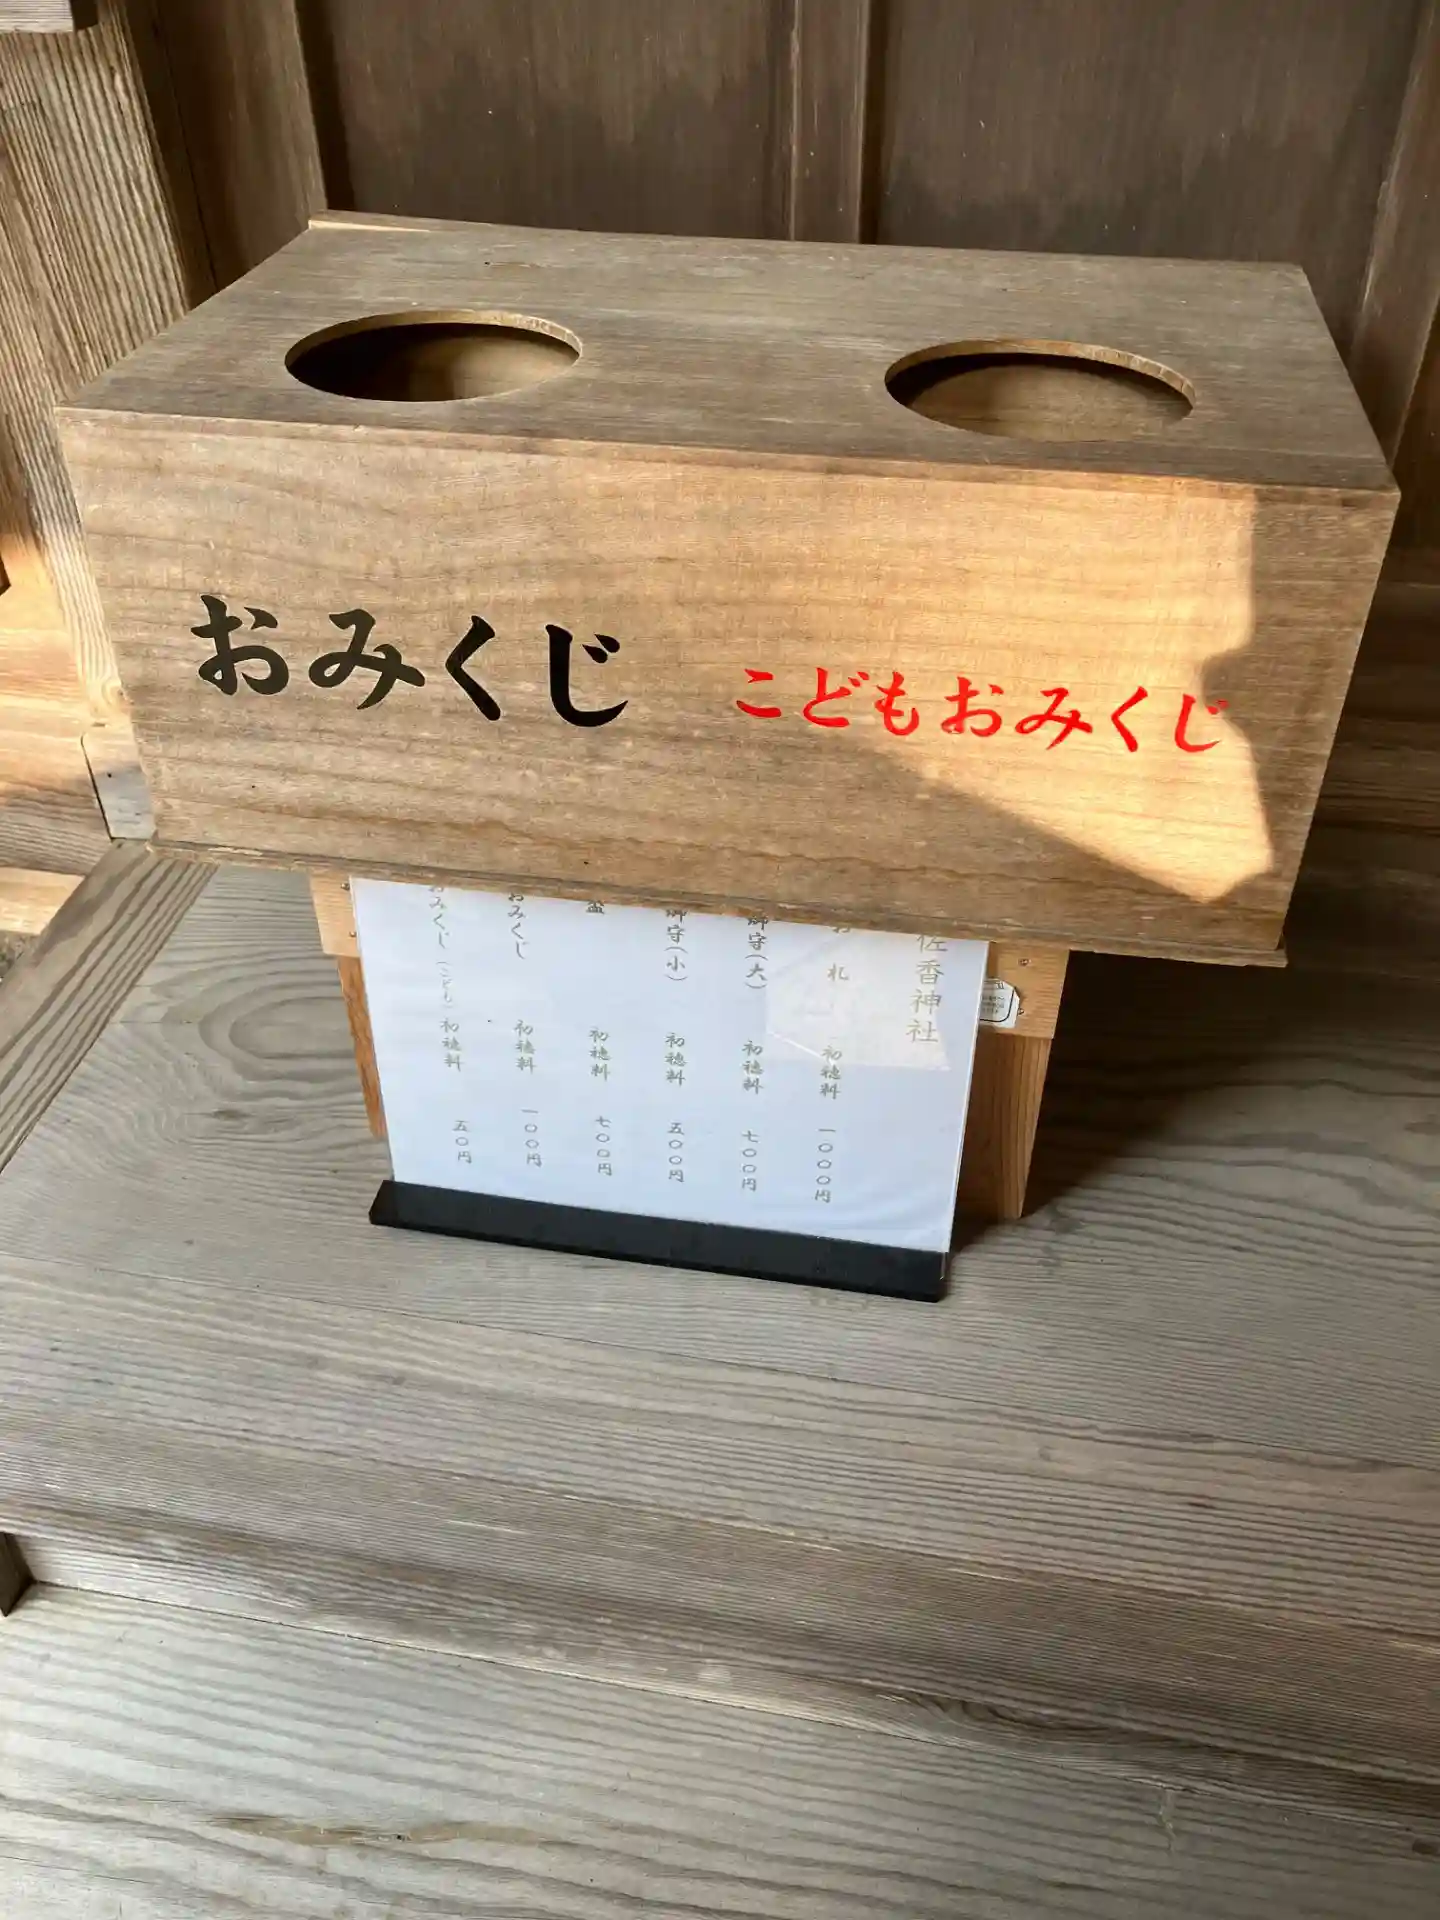 おみくじ
こどもおみくじ
佐香神社
お札 初穂料 一〇〇〇円
御守(大) 初穂料 七〇〇円
御守(小) 初穂料 五〇〇円
盃 初穂料 七〇〇円
おみくじ 初穂料 一〇〇円
おみくじ(こども) 初穂料 五〇円